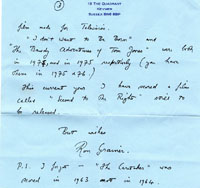 ③
18 THE QUADRANT
SUSSEX BN6 8BP
film made for Television.
"I don't want to be Born" and
"The Bawdy Adventures of Tom Jones" were both
in 1975 and in 1975 respectively (you have
them in 1975 & 76)
This current year I have scored a film
called " to be Right" which is to
be released.
Best wishes
Ron Grainer.
P.S. I forgot — "The Caretaker" was
scored in 1963 not in 1964.